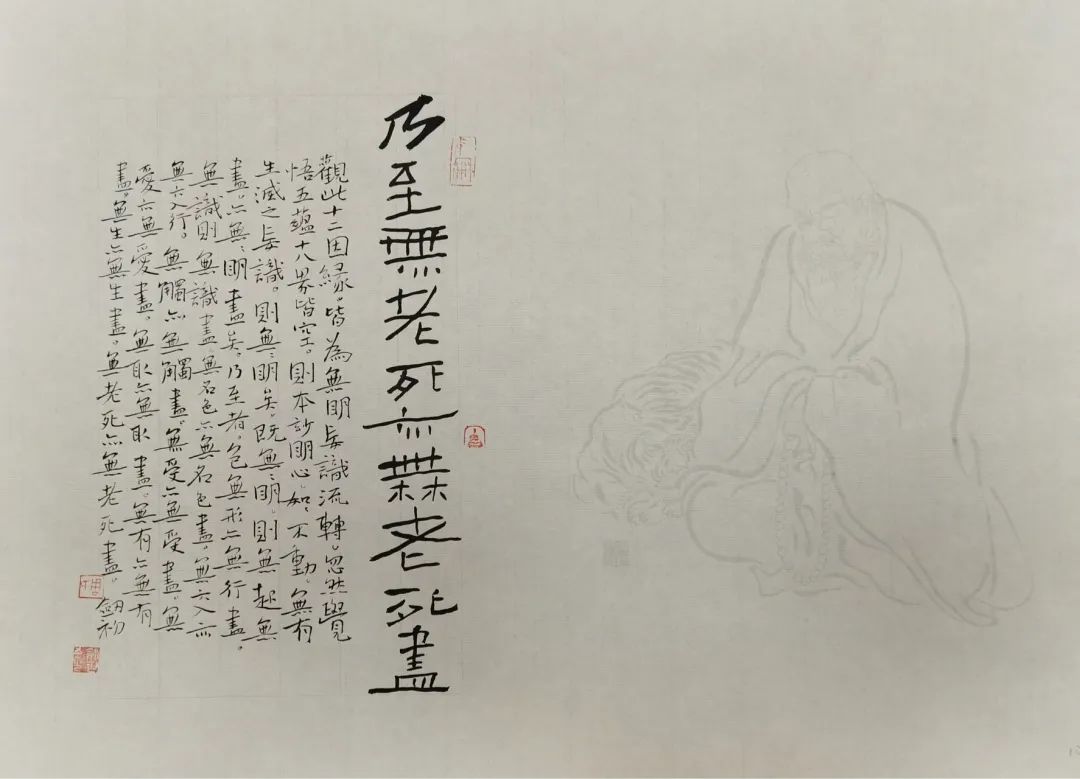 乃至無老死亦無老死盡
觀此十二因緣。皆為無明妄識流轉。忽然覺
悟五蘊十八界皆空。則本妙明心。如、不動。無有
生滅之妄識。則無、明矣。既無、明。則無起無
盡。亦無、明盡矣。乃至者。包無形亦無行盡。
無識則無識盡。無名色亦無名色盡。無六入亦
無六入行。無觸亦無觸盡。無受亦無受盡。無
愛亦無愛盡。無取亦無取盡。無有亦無有
盡。無生亦無生盡。無老死亦無老死盡。劍初